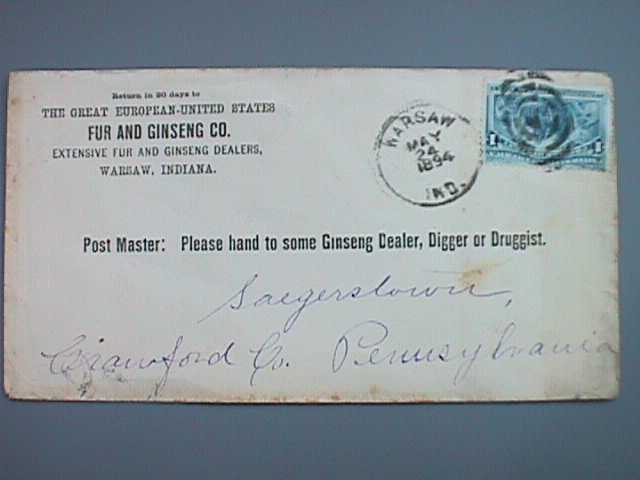 Return in 20 days to
THE GREAT EUROPEAN-UNITED STATES
FUR AND GINSENG CO.
EXTENSIVE FUR AND GINSENG DEALERS,
WARSAW, INDIANA.
WARSAW
MAY
24
1894
IND.
1 1
Post Master: Please hand to some Ginseng Dealer, Digger or Druggist.
Saegerstown,
Crawford Co. Pennsylvania